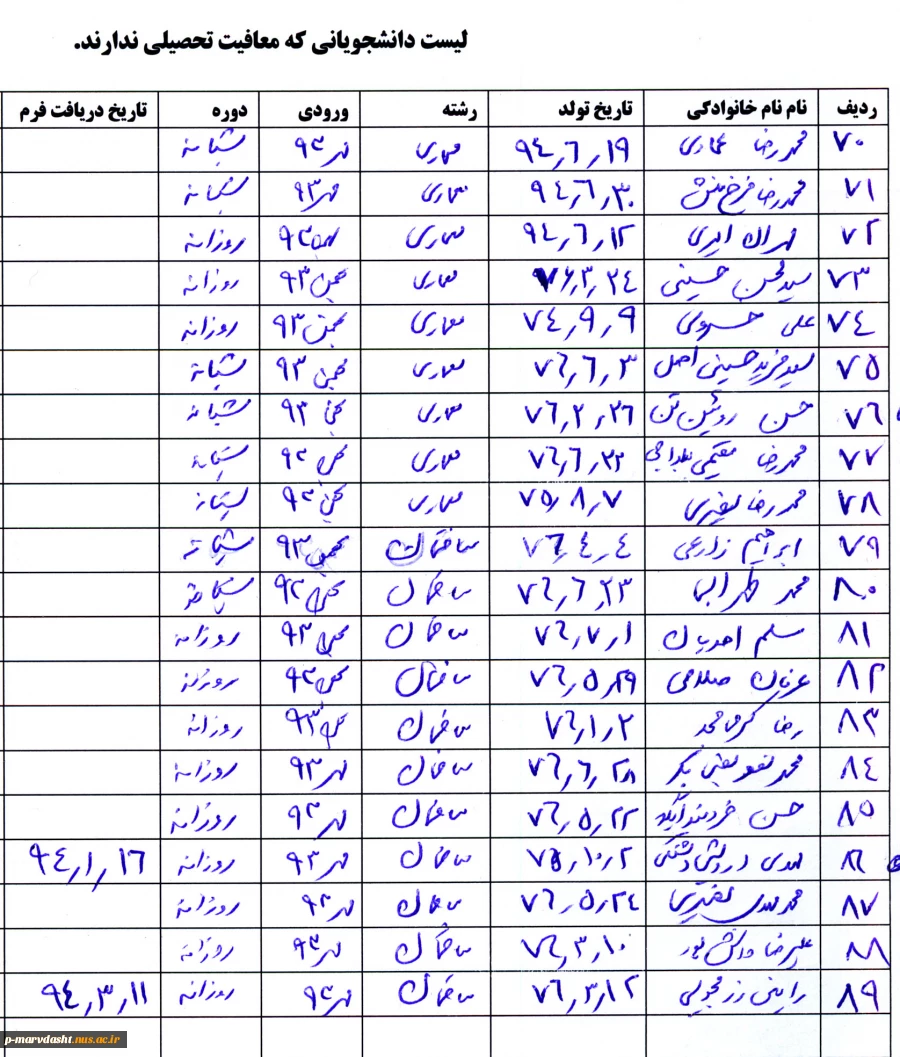 لیست دانشجویانی که معافیت تحصیلی ندارند.
ردیف نام نام خانوادگی تاریخ تولد رشته ورودی دوره تاریخ دریافت فرم
۷۰ محمدرضا عماری ۹۴/۶/۱۹ معماری مهر ۹۳ شبانه
۷۱ محمدرضا فرخ منش ۹۴/۶/۳۰ معماری مهر ۹۳ شبانه
۷۲ ۹۴/۶/۱۲ معماری ۹۳ روزانه
۷۳ حسینی ۷۶/۳/۲۴ معماری بهمن ۹۳ روزانه
۷۴ علی خسروی ۷۴/۹/۹ معماری بهمن ۹۳ روزانه
۷۵ سید فرید حسینی اصل ۷۶/۶/۳ معماری بهمن ۹۳ شبانه
۷۶ حسن روئین تن ۷۶/۲/۲۶ معماری بهمن ۹۳ شبانه
۷۷ محمدرضا مقیمی ۷۶/۶/۲۲ معماری بهمن ۹۳ شبانه
۷۸ محمدرضا ۷۵/۸/۷ معماری بهمن ۹۳ شبانه
۷۹ ابراهیم زارعی ۷۶/۴/۴ ساختمان بهمن ۹۳ شبانه
۸۰ محمد ۷۶/۶/۲۳ ساختمان بهمن ۹۳ شبانه
۸۱ مسلم احمدیان ۷۶/۷/۱ ساختمان بهمن ۹۳ روزانه
۸۲ عرفان صلاحی ۷۶/۵/۲۹ ساختمان بهمن ۹۳ روزانه
۸۳ رضا ۷۶/۱/۲ ساختمان بهمن ۹۳ روزانه
۸۴ محمد ۷۶/۶/۲۸ ساختمان مهر ۹۳ روزانه
۸۵ حسن ۷۶/۵/۲۲ ساختمان مهر ۹۳ روزانه
۸۶ مهدی ۷۵/۱۰/۲ ساختمان مهر ۹۳ روزانه ۹۴/۱/۱۶
۸۷ محمدمهدی ۷۶/۵/۲۴ ساختمان مهر ۹۳ روزانه
۸۸ علیرضا ۷۶/۳/۱۰ ساختمان مهر ۹۳ روزانه
۸۹ رامین ۷۶/۳/۱۲ ساختمان مهر ۹۳ روزانه ۹۴/۳/۱۱
p-marvdasht.nus.ac.ir